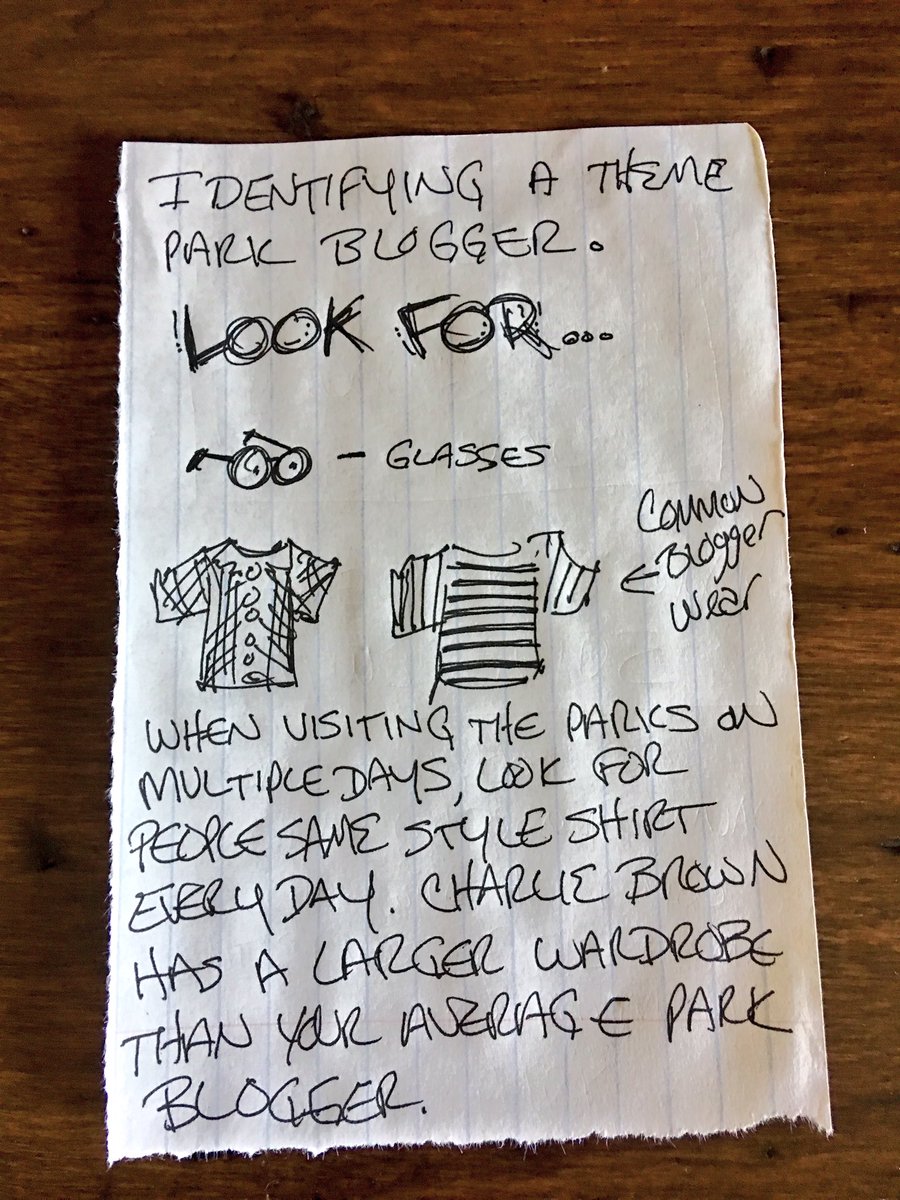 IDENTIFYING A THEME
PARK BLOGGER.
LOOK FOR...
- GLASSES
COMMON
BLOGGER
WEAR
WHEN VISITING THE PARKS ON
MULTIPLE DAYS, LOOK FOR
PEOPLE SAME STYLE SHIRT
EVERY DAY. CHARLIE BROWN
HAS A LARGER WARDROBE
THAN YOUR AVERAGE PARK
BLOGGER.